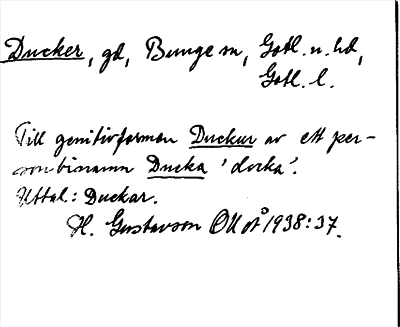 Ducker, gd, Bunge sn, Gotl. n. hd,
Gotl. l.
Till genitivformen Duckur av ett per-
sonbinamn Ducka 'docka'.
Uttal: Duckar.
H. Gustavson OUoÅ 1938:37.